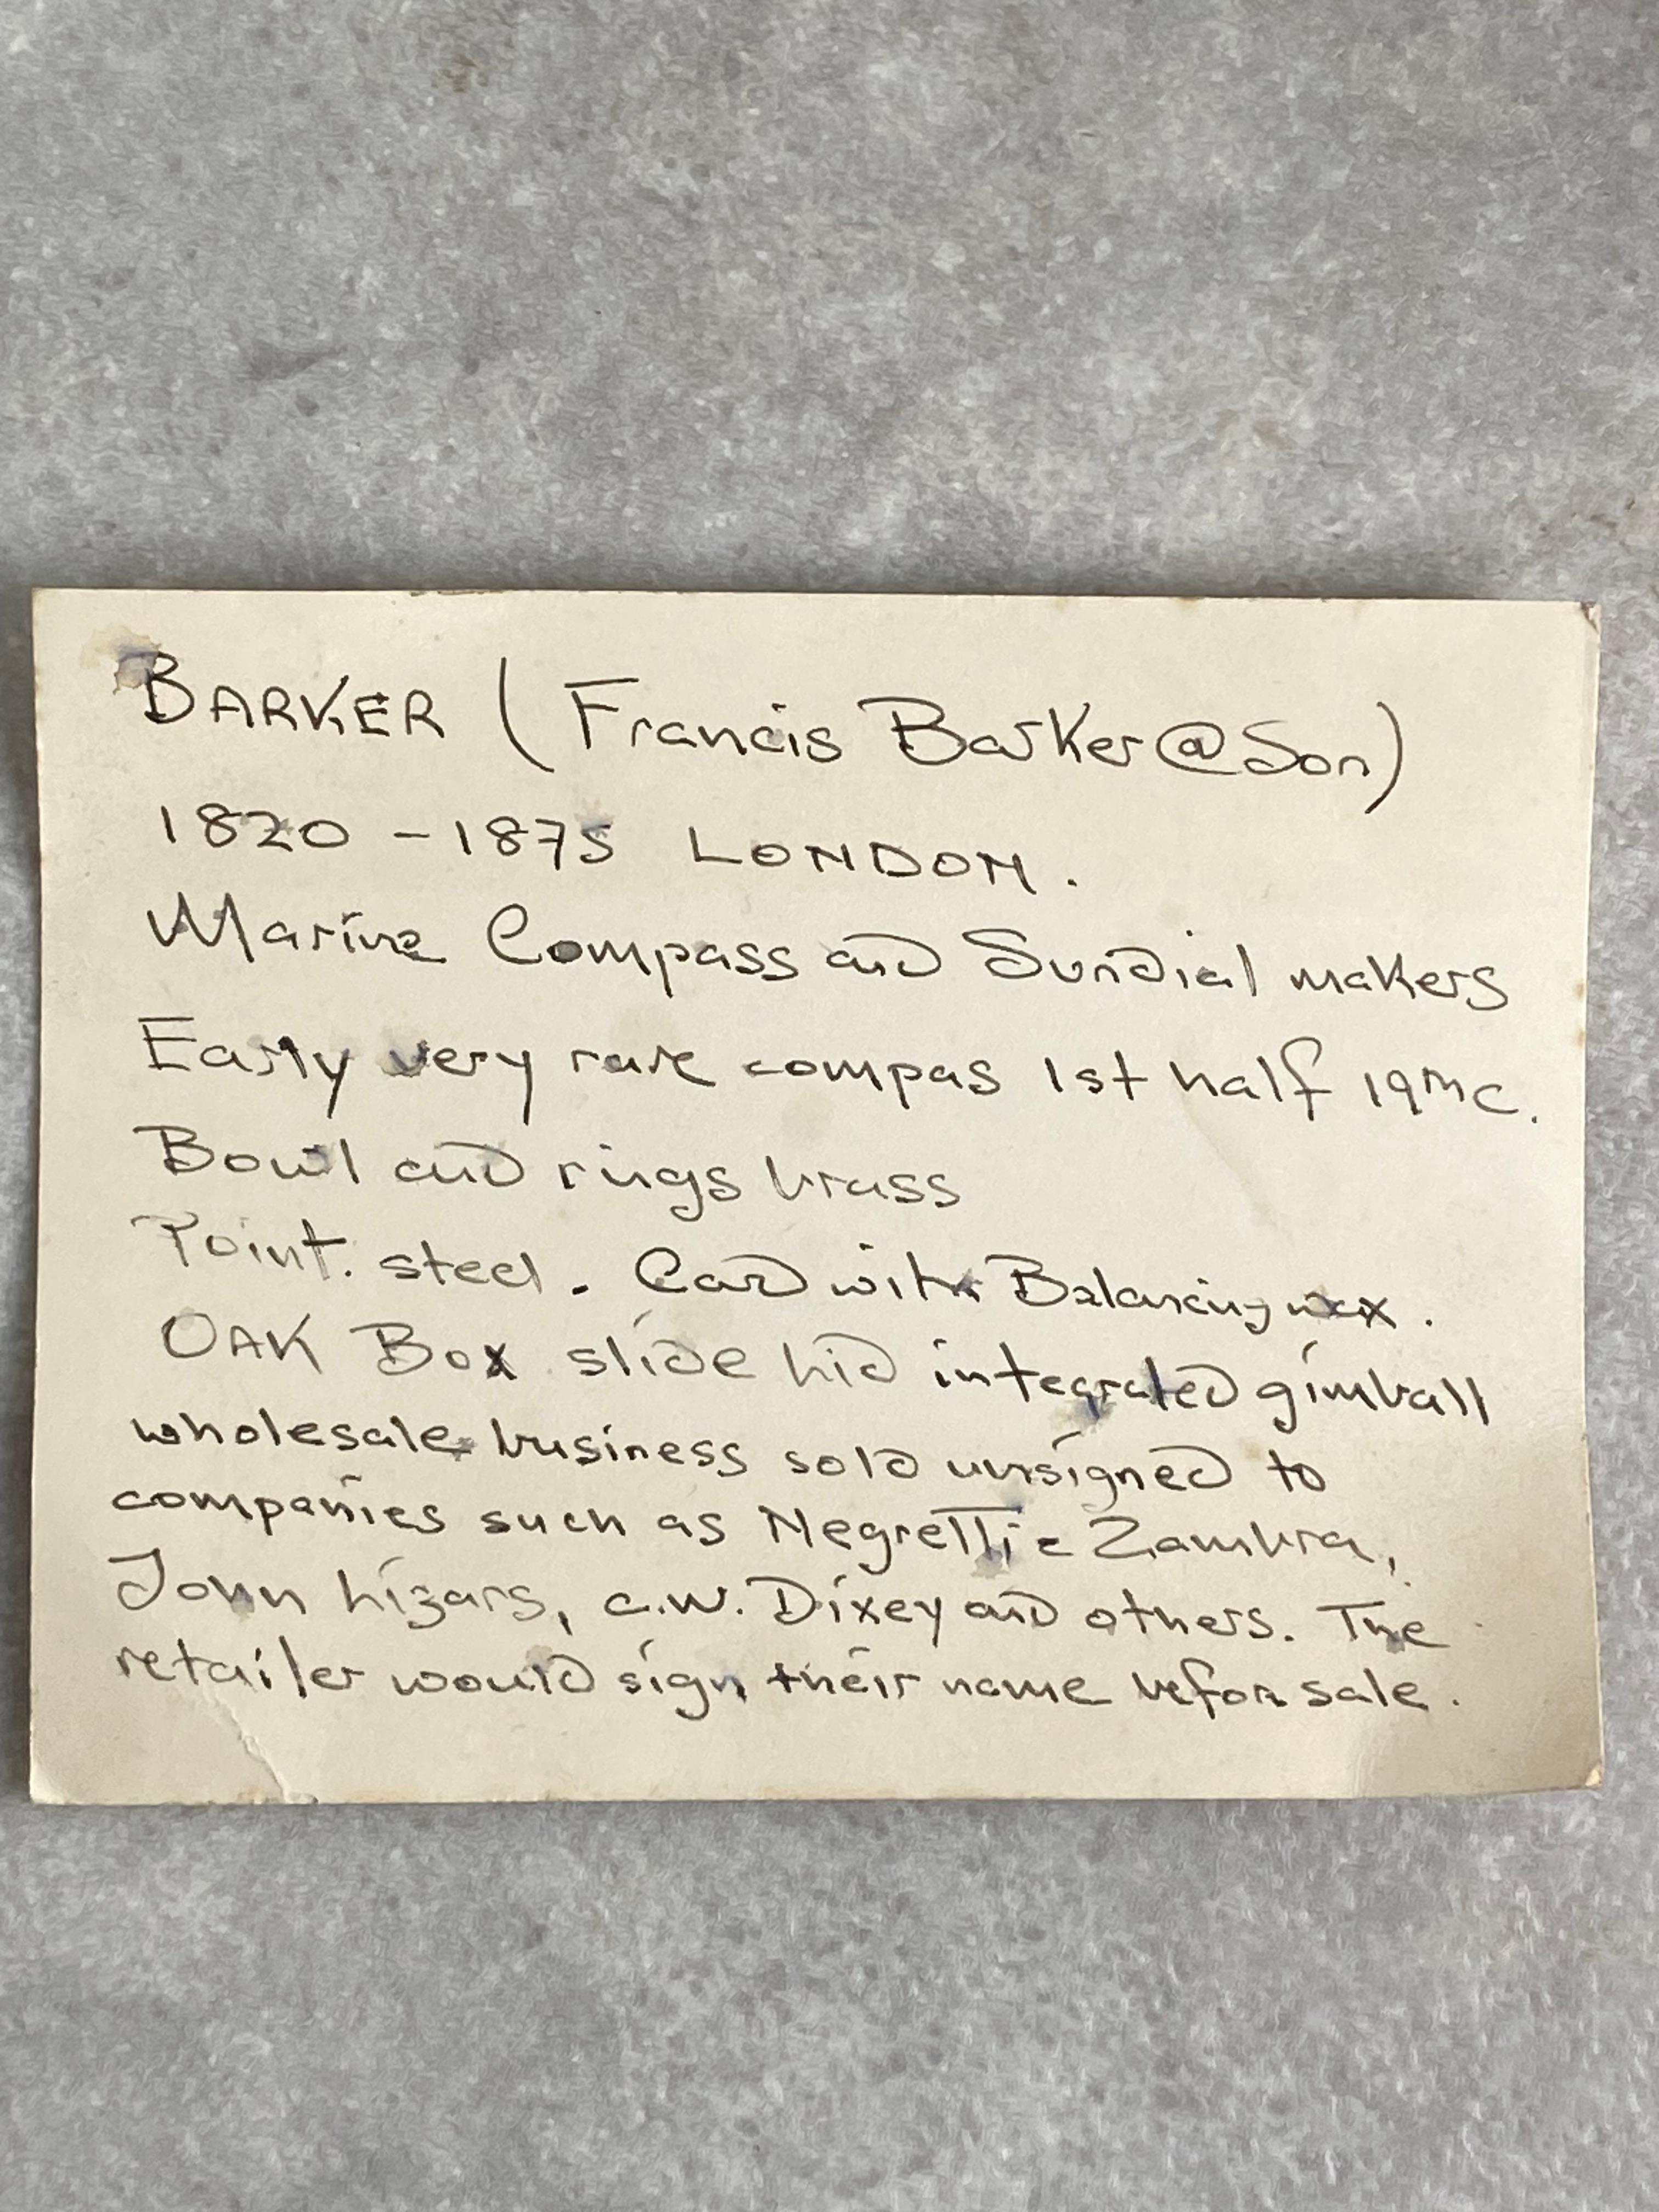 BARKER (Francis Barker @ Son)
1820 - 1875 LONDON.
Marine Compass and Sundial makers
Early very rare compas 1st half 19th C.
Bowl and rings brass
Point. steel. Card with Balancing wax.
OAK Box slide lid integrated gimball
wholesale business sold unsigned to
companies such as Negretti e Zambra,
John Lizars, C.W. Dixey and others. The
retailer would sign their name before sale.